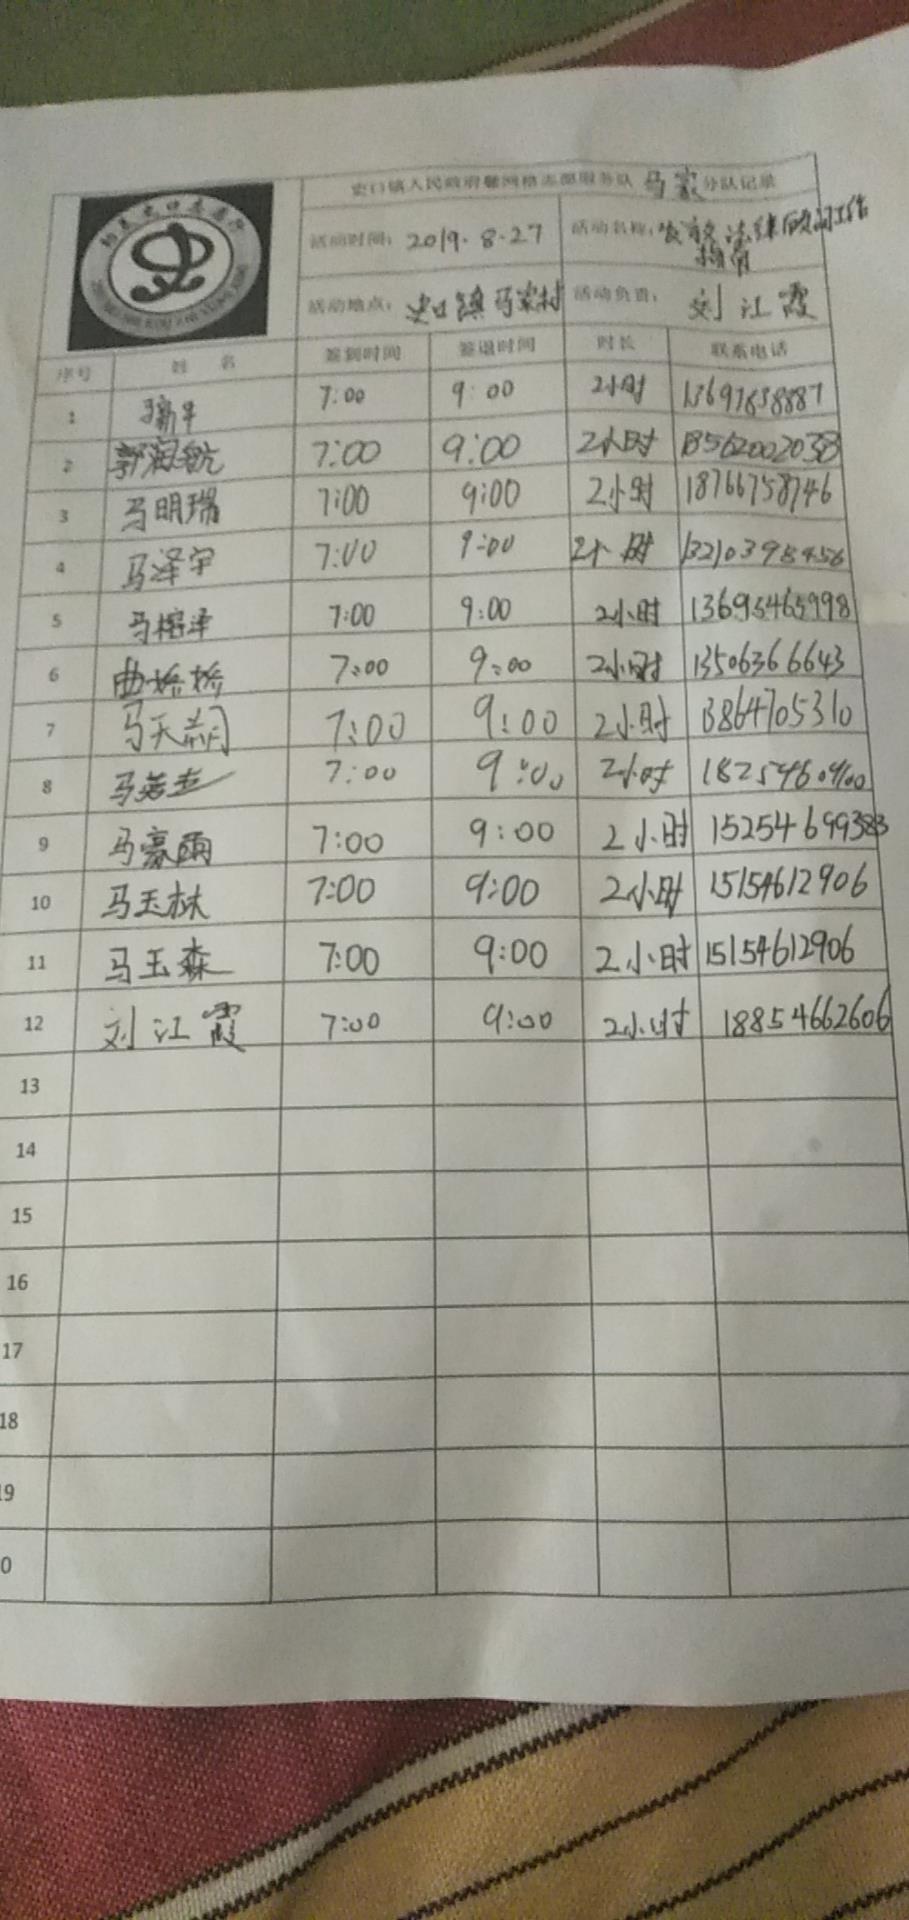 史口镇人民政府馨网格志愿服务队 马家 分队记录
活动时间: 2019.8.27 活动名称: 发放法律顾问工作指南
活动地点: 史口镇马家村 活动负责: 刘江霞
序号 姓 名 签到时间 签退时间 时长 联系电话
1 7:00 9:00 2小时 13697638887
2 郭润航 7:00 9:00 2小时 13562002038
3 马明瑞 7:00 9:00 2小时 18766758746
4 马泽宇 7:00 9:00 2小时 13210398456
5 马榕泽 7:00 9:00 2小时 13695465998
6 曲娇娇 7:00 9:00 2小时 13506366643
7 马天 7:00 9:00 2小时 13864705310
8 马 7:00 9:00 2小时 18254609100
9 马豪雨 7:00 9:00 2小时 15254699383
10 马玉林 7:00 9:00 2小时 15154612906
11 马玉森 7:00 9:00 2小时 15154612906
12 刘江霞 7:00 9:00 2小时 18854662606
13
14
15
16
17
18
19
0